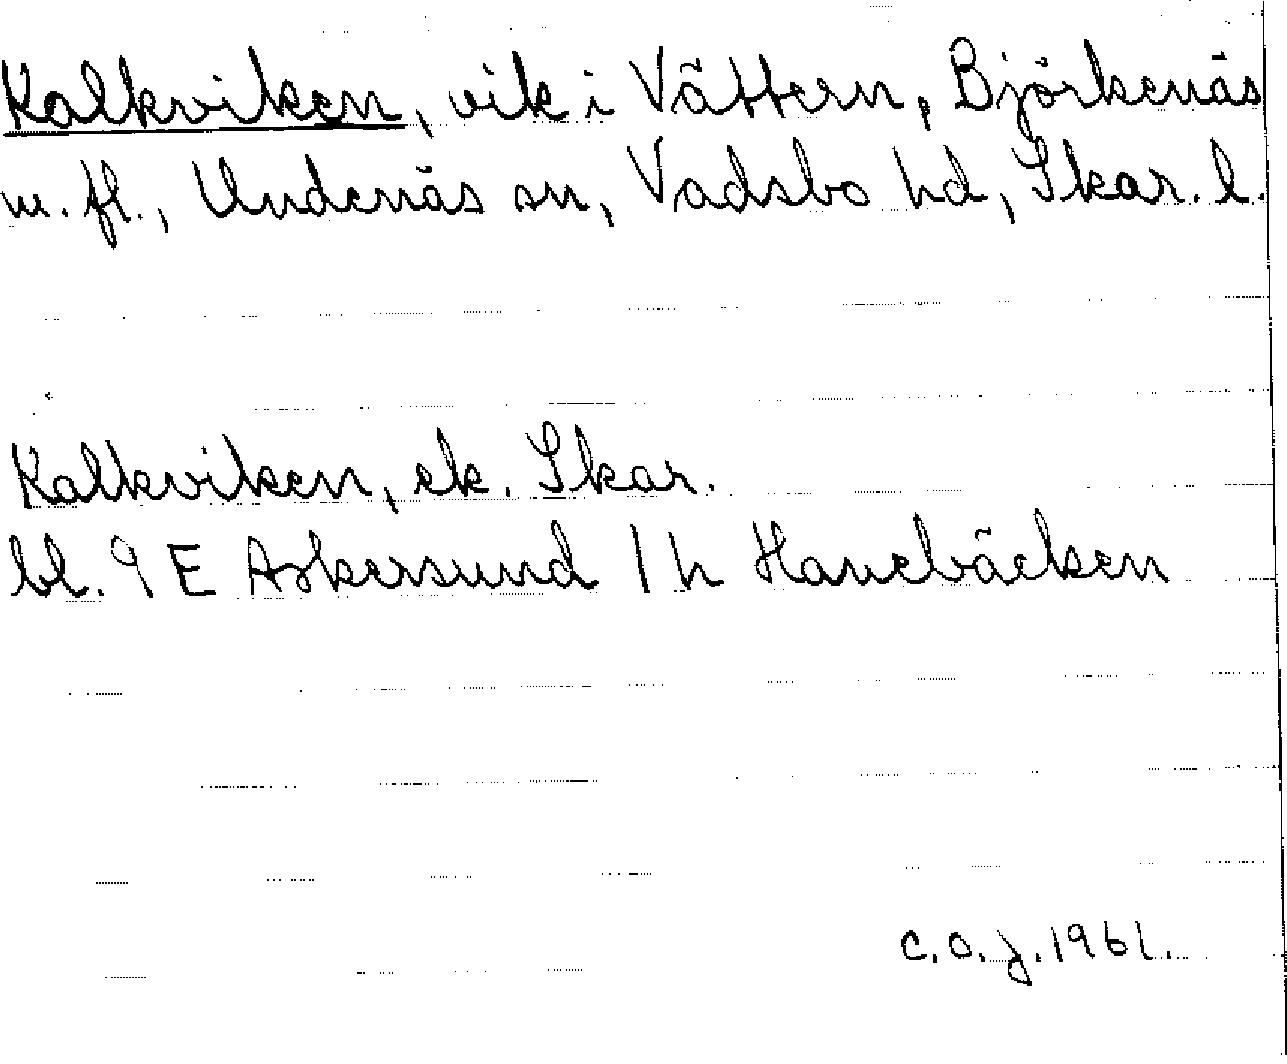 Kalkviken, vik i Vättern, Björkenäs
m. fl., Undenäs sn, Vadsbo hd, Skar. l.
Kalkviken, ek. Skar.
bl. 9 E Askersund 1 h Hanebäcken
C. O. J. 1961.